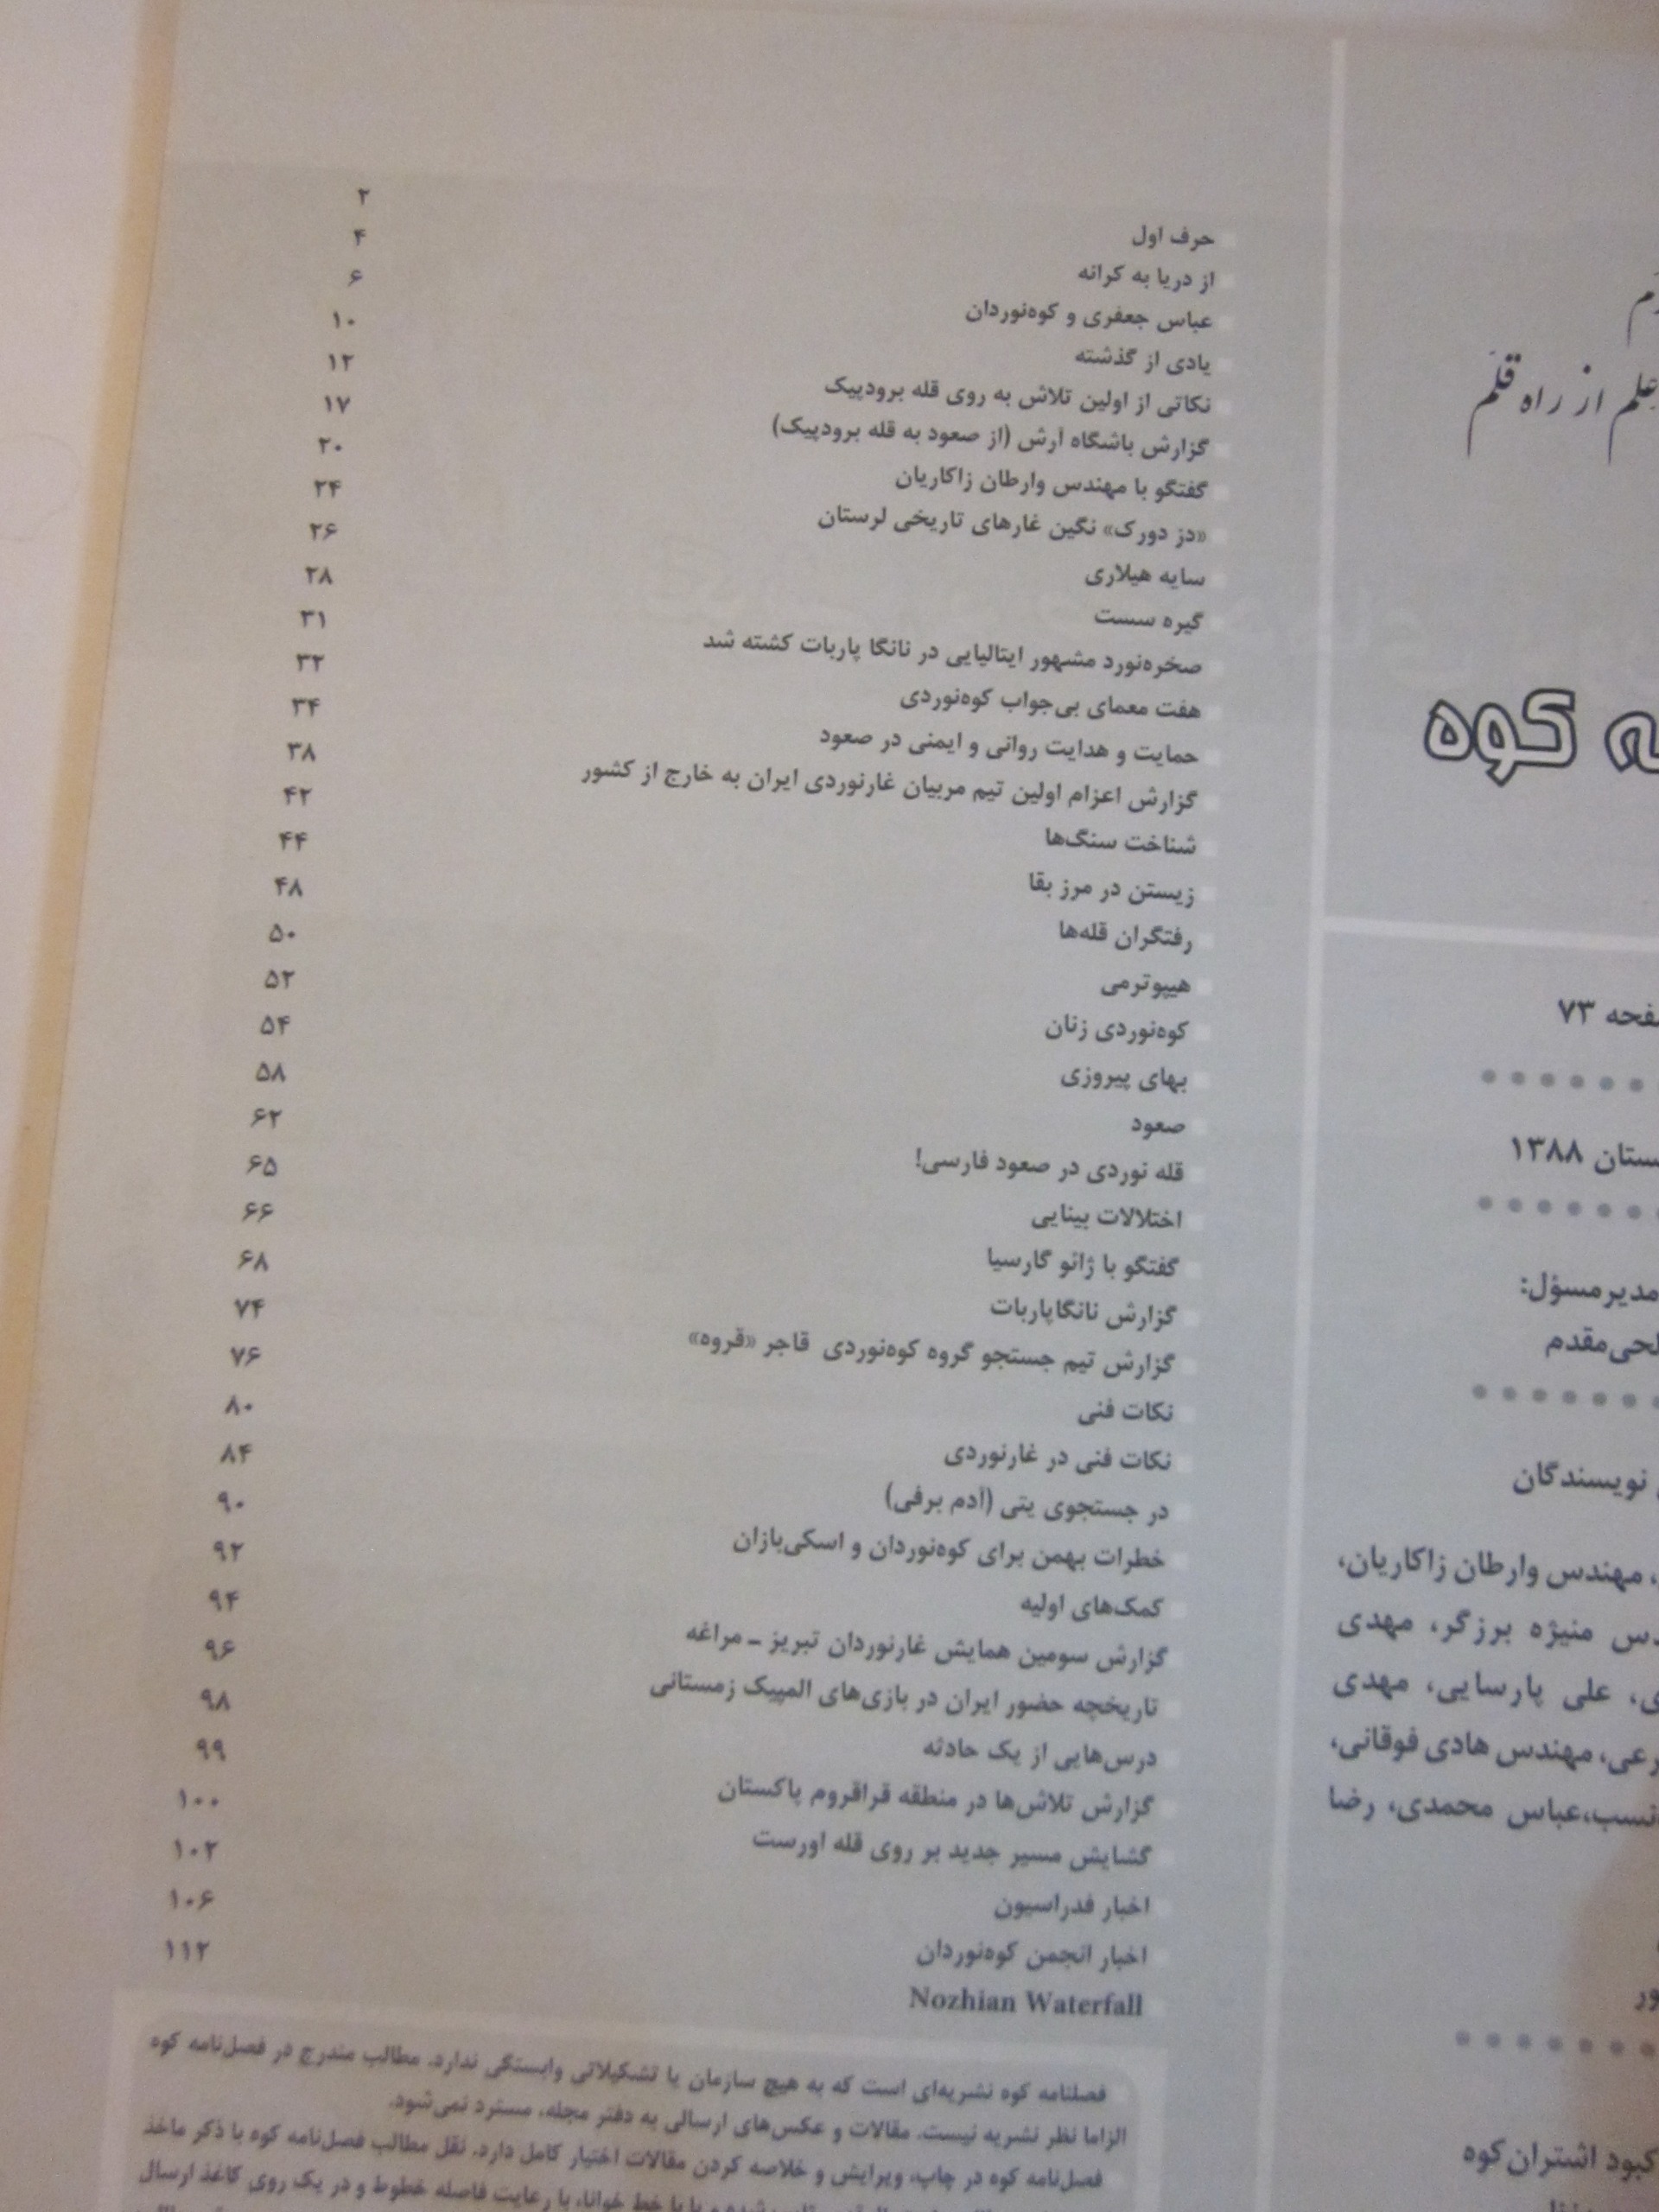 علم از راه قلم
ه کوه
صفحه ۷۳
۱۳۸۸
مدیرمسؤل:
نویسندگان
مهندس وارطان زاکاریان،
منیژه برزگر، مهدی
علی پارسایی، مهدی
مهندس هادی فوقانی،
عباس محمدی، رضا
کبود اشتران‌کوه
حرف اول ۲
از دریا به کرانه ۴
عباس جعفری و کوه‌نوردان ۶
یادی از گذشته ۱۰
نکاتی از اولین تلاش به روی قله برودپیک ۱۲
گزارش باشگاه آرش (از صعود به قله برودپیک) ۱۷
گفتگو با مهندس وارطان زاکاریان ۲۰
«دز دورک» نگین غارهای تاریخی لرستان ۲۴
سایه هیلاری ۲۶
گیره سست ۲۸
صخره‌نورد مشهور ایتالیایی در نانگا پاربات کشته شد ۳۱
هفت معمای بی‌جواب کوه‌نوردی ۳۲
حمایت و هدایت روانی و ایمنی در صعود ۳۴
گزارش اعزام اولین تیم مربیان غارنوردی ایران به خارج از کشور ۳۸
شناخت سنگ‌ها ۴۲
زیستن در مرز بقا ۴۴
رفتگران قله‌ها ۴۸
هیپوترمی ۵۰
کوه‌نوردی زنان ۵۲
بهای پیروزی ۵۴
صعود ۵۸
قله نوردی در صعود فارسی! ۶۲
اختلالات بینایی ۶۵
گفتگو با ژانو گارسیا ۶۶
گزارش نانگاپاربات ۶۸
گزارش تیم جستجو گروه کوه‌نوردی قاجر «قروه» ۷۴
نکات فنی ۷۶
نکات فنی در غارنوردی ۸۰
در جستجوی یتی (آدم برفی) ۸۴
خطرات بهمن برای کوه‌نوردان و اسکی‌بازان ۹۰
کمک‌های اولیه ۹۲
گزارش سومین همایش غارنوردان تبریز ـ مراغه ۹۴
تاریخچه حضور ایران در بازی‌های المپیک زمستانی ۹۶
درس‌هایی از یک حادثه ۹۸
گزارش تلاش‌ها در منطقه قراقروم پاکستان ۹۹
گشایش مسیر جدید بر روی قله اورست ۱۰۰
اخبار فدراسیون ۱۰۲
اخبار انجمن کوه‌نوردان ۱۰۶
Nozhian Waterfall ۱۱۲
فصلنامه کوه نشریه‌ای است که به هیچ سازمان یا تشکیلاتی وابستگی ندارد. مطالب مندرج در فصل‌نامه کوه
الزاما نظر نشریه نیست. مقالات و عکس‌های ارسالی به دفتر مجله، مسترد نمی‌شود.
فصل‌نامه کوه در چاپ، ویرایش و خلاصه کردن مقالات اختیار کامل دارد. نقل مطالب فصل‌نامه کوه با ذکر ماخذ
با خط خوانا، با رعایت فاصله خطوط و در یک روی کاغذ ارسال